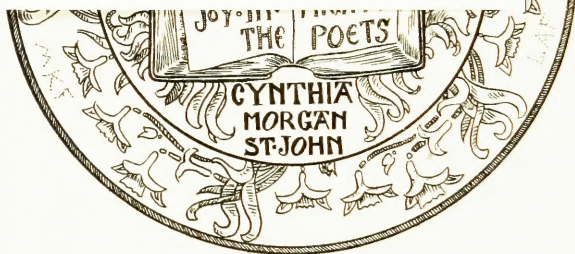 THE POETS
CYNTHIA
MORGAN
ST·JOHN